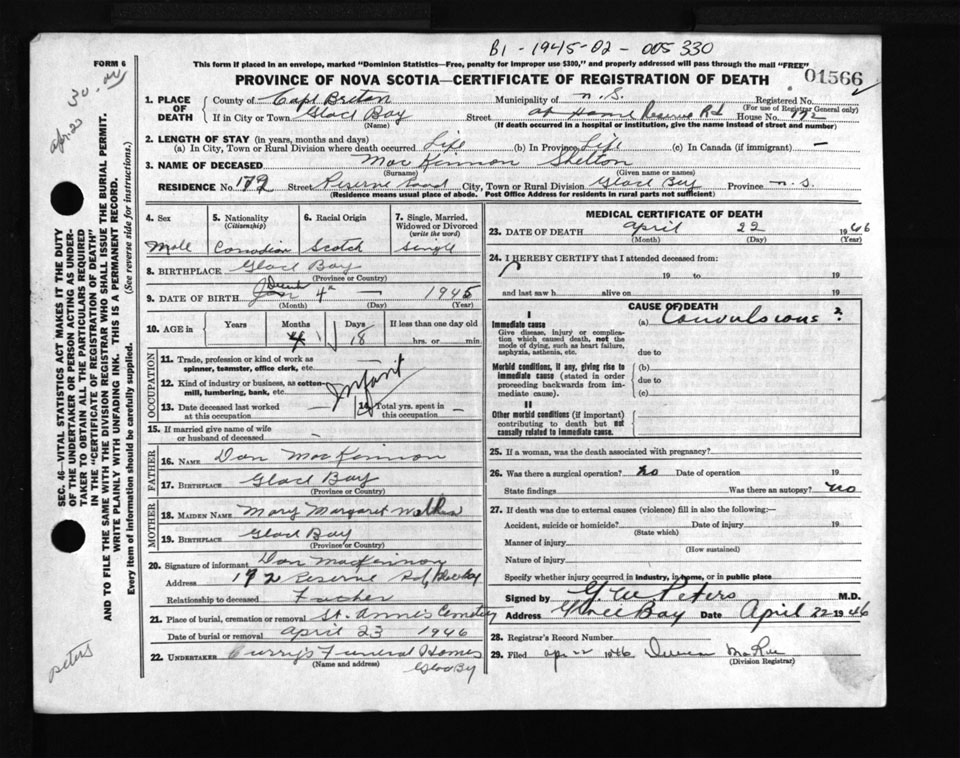 B1 - 1945-02 - 005330
FORM 6
This form if placed in an envelope, marked "Dominion Statistics—Free, penalty for improper use $300," and properly addressed will pass through the mail "FREE"
PROVINCE OF NOVA SCOTIA—CERTIFICATE OF REGISTRATION OF DEATH
01566
1. PLACE OF DEATH
County of Cape Breton Municipality of N.S. Registered No.
(For use of Registrar General only)
If in City or Town Glace Bay Street at Home Reserve Rd House No. 172
(Name) (If death occurred in a hospital or institution, give the name instead of street and number)
2. LENGTH OF STAY (in years, months and days)
(a) In City, Town or Rural Division where death occurred. Life (b) In Province Life (c) In Canada (if immigrant) —
3. NAME OF DECEASED MacKinnon Shelton
(Surname) (Given name or names)
RESIDENCE No. 172 Street Reserve Road City, Town or Rural Division Glace Bay Province N.S.
(Residence means usual place of abode. Post Office Address for residents in rural parts not sufficient)
4. Sex
Male
5. Nationality
(Citizenship)
Canadian
6. Racial Origin
Scotch
7. Single, Married, Widowed or Divorced
(write the word)
Single
8. BIRTHPLACE Glace Bay
(Province or Country)
9. DATE OF BIRTH 4 1945
(Month) (Day) (Year)
10. AGE in
Years Months Days If less than one day old
4 18 hrs. or min.
OCCUPATION
11. Trade, profession or kind of work as spinner, teamster, office clerk, etc. —
12. Kind of industry or business, as cotton-mill, lumbering, bank, etc. Infant
13. Date deceased last worked at this occupation —
14. Total yrs. spent in this occupation —
15. If married give name of wife or husband of deceased —
FATHER
16. NAME Dan MacKinnon
17. BIRTHPLACE Glace Bay
(Province or Country)
MOTHER
18. MAIDEN NAME Mary Margaret
19. BIRTHPLACE Glace Bay
(Province or Country)
20. Signature of informant Dan MacKinnon
Address 172 Reserve Rd
Relationship to deceased Father
21. Place of burial, cremation or removal St. Anne's Cemetery
Date of burial or removal April 23 1946
22. UNDERTAKER Curry's Funeral Homes
(Name and address)
Glace Bay
MEDICAL CERTIFICATE OF DEATH
23. DATE OF DEATH April 22 1946
(Month) (Day) (Year)
24. I HEREBY CERTIFY that I attended deceased from:
19 to 19
and last saw h alive on 19
CAUSE OF DEATH
I
Immediate cause (a) Convulsions?
Give disease, injury or complication which caused death, not the mode of dying, such as heart failure, asphyxia, asthenia, etc.
due to
Morbid conditions, if any, giving rise to immediate cause (stated in order proceeding backwards from immediate cause).
(b)
due to
(c)
II
Other morbid conditions (if important) contributing to death but not causally related to immediate cause.
25. If a woman, was the death associated with pregnancy?
26. Was there a surgical operation? No Date of operation 19
State findings Was there an autopsy? No
27. If death was due to external causes (violence) fill in also the following:—
Accident, suicide or homicide? Date of injury 19
(State which)
Manner of injury
(How sustained)
Nature of injury
Specify whether injury occurred in industry, in home, or in public place
Signed by G.W. Peters M.D.
Address Glace Bay Date April 22 1946
28. Registrar's Record Number
29. Filed Apr 22 1946
(Division Registrar)
SEC. 46—VITAL STATISTICS ACT MAKES IT THE DUTY
OF THE UNDERTAKER OR PERSON ACTING AS UNDER-
TAKER TO OBTAIN ALL THE PARTICULARS REQUIRED
IN THE "CERTIFICATE OF REGISTRATION OF DEATH"
AND TO FILE THE SAME WITH THE DIVISION REGISTRAR WHO SHALL ISSUE THE BURIAL PERMIT.
WRITE PLAINLY WITH UNFADING INK. THIS IS A PERMANENT RECORD.
Every item of information should be carefully supplied. (See reverse side for instructions.)
Peters